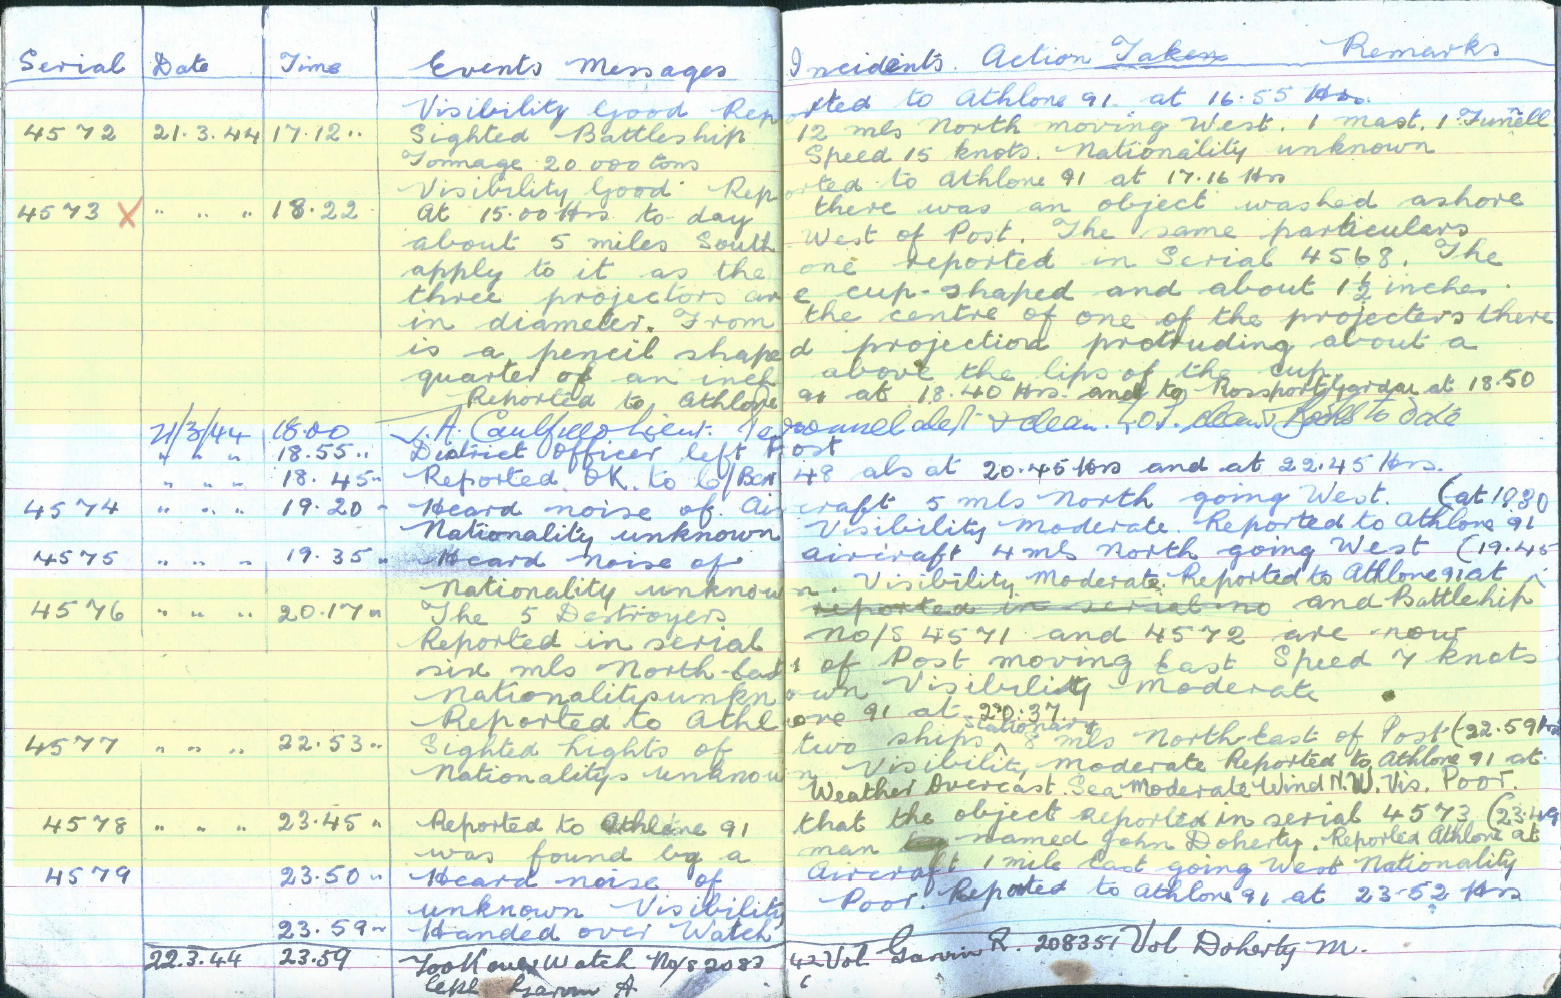 Serial Date Time Events Messages Incidents. Action Taken Remarks
Visibility Good Reported to Athlone 91 at 16.55 Hrs.
4572 21.3.44 17.12 " Sighted Battleship 12 mls North moving West. 1 mast. 1 Funell
Tonnage 20 000 tons Speed 15 knots. Nationality unknown
Visibility Good Reported to Athlone 91 at 17.16 Hrs
4573 X " " " 18.22 At 15.00 Hrs to day there was an object washed ashore
about 5 miles South West of Post. The same particulars
apply to it as the one reported in Serial 4568. The
three projectors are cup-shaped and about 1½ inches.
in diameter. From the centre of one of the projecters there
is a pencil shaped projection protruding about a
quarter of an inch above the lips of the cup.
Reported to Athlone 91 at 18.40 Hrs and to Rossport Gardai at 18.50
21/3/44 18.00 A. Caulfield Lieut. Personnel alert & clean. L.O.P. clean & Books to date
" " " 18.55 " District Officer left Post
" " " 18.45 " Reported OK. to 48 als at 20.45 Hrs and at 22.45 Hrs.
4574 " " " 19.20 " Heard noise of Aircraft 5 mls North going West. (at 1930
Nationality unknown Visibility Moderate. Reported to Athlone 91
4575 " " " 19.35 " Heard noise of aircraft 4 mls North going West (19.45
Nationality unknown. Visibility Moderate. Reported to Athlone 91 at
4576 " " " 20.17 " The 5 Destroyers reported in serial no and Battleship
Reported in serial No/s 4571 and 4572 are now
six mls North-East of Post moving East Speed 7 knots
Nationalitys unknown Visibility moderate
Reported to Athlone 91 at 20.37.
4577 " " " 22.53 " Sighted Lights of two ships stationary 8 mls North East of Post (22.59 Hrs
Nationalitys unknown. Visibility Moderate Reported to Athlone 91 at
Weather Overcast. Sea Moderate Wind N.W. Vis. Poor.
4578 " " " 23.45 " Reported to Athlone 91 that the object reported in serial 4573 (23.49
was found by a man named John Doherty. Reported Athlone at
4579 23.50 " Heard noise of Aircraft 1 mile East going West Nationality
unknown Visibility Poor. Reported to Athlone 91 at 23-52 Hrs
23.59 " Handed over Watch
22.3.44 23.59 Took over Watch No/s 208342 Vol Garvin R. 208351 Vol Doherty M.
Garvin A